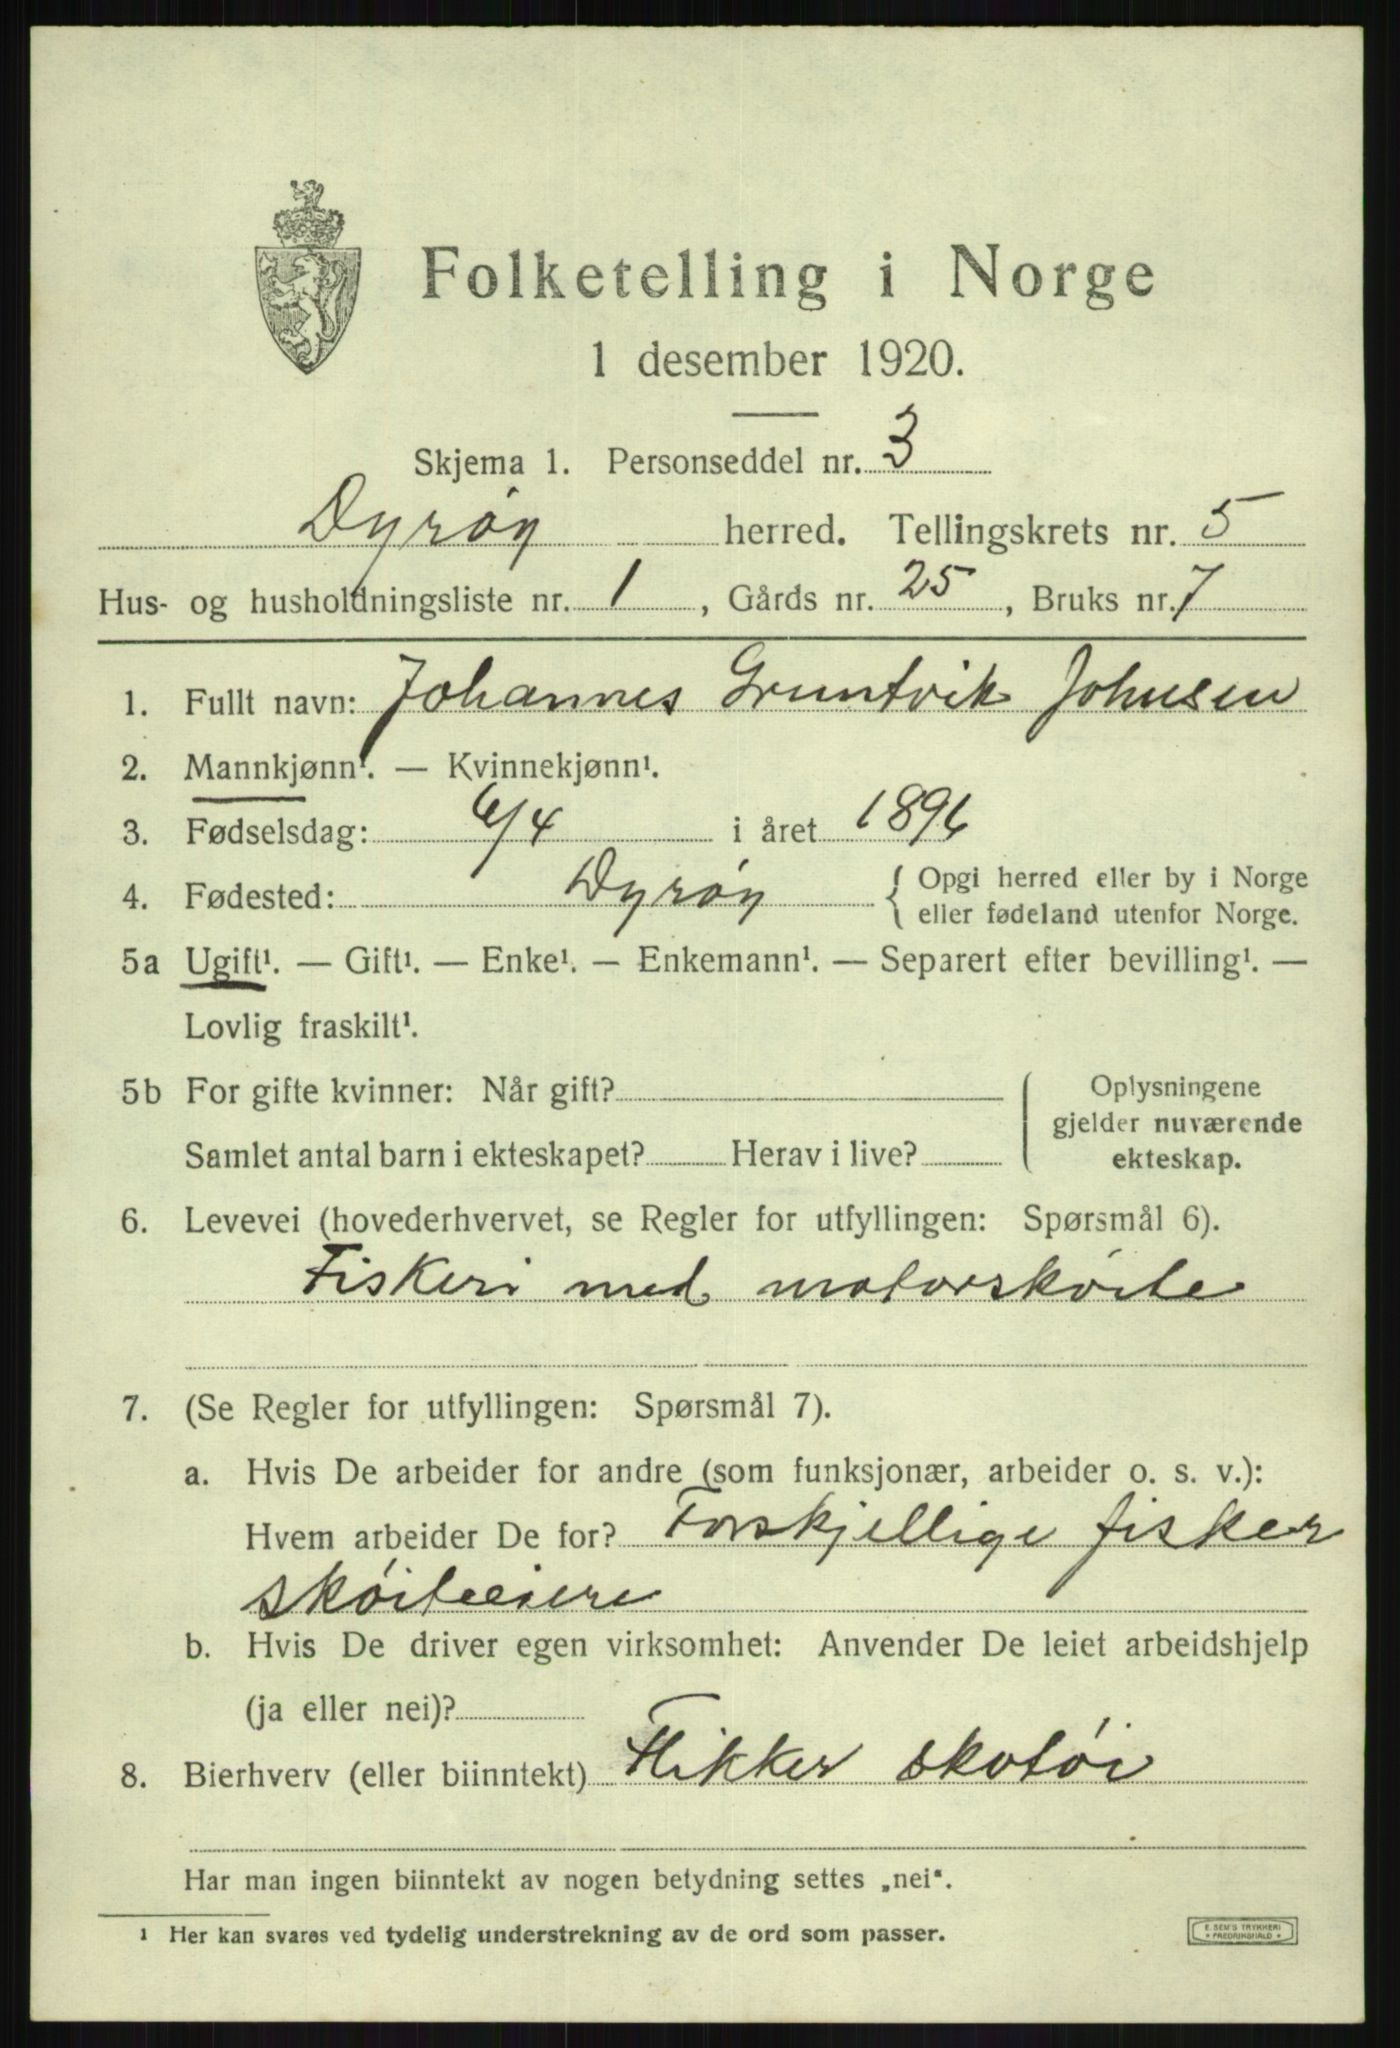 Folketelling i Norge
1 desember 1920.
Skjema 1. Personseddel nr. 3
Dyrøy herred. Tellingskrets nr. 5
Hus- og husholdningsliste nr. 1, Gårds nr. 25, Bruks nr. 7
1. Fullt navn: Johannes Gruntvik Johnsen
2. Mannkjønn¹. — Kvinnekjønn¹.
3. Fødselsdag: 6/4 i året 1896
4. Fødested: Dyrøy { Opgi herred eller by i Norge
eller fødeland utenfor Norge.
5a Ugift¹. — Gift¹. — Enke¹. — Enkemann¹. — Separert efter bevilling¹. —
Lovlig fraskilt¹.
5b For gifte kvinner: Når gift?
Samlet antal barn i ekteskapet? Herav i live?
Oplysningene
gjelder nuværende
ekteskap.
6. Levevei (hovederhvervet, se Regler for utfyllingen: Spørsmål 6).
Fiskeri med motorskøite
7. (Se Regler for utfyllingen: Spørsmål 7).
a. Hvis De arbeider for andre (som funksjonær, arbeider o. s. v.):
Hvem arbeider De for? Forskjellige fisker
skøiteeiere
b. Hvis De driver egen virksomhet: Anvender De leiet arbeidshjelp
(ja eller nei)?
8. Bierhverv (eller biinntekt) Flikker skotøi
Har man ingen biinntekt av nogen betydning settes „nei“.
¹ Her kan svares ved tydelig understrekning av de ord som passer.
E. SEM'S TRYKKERI
• FREDRIKSHALD •